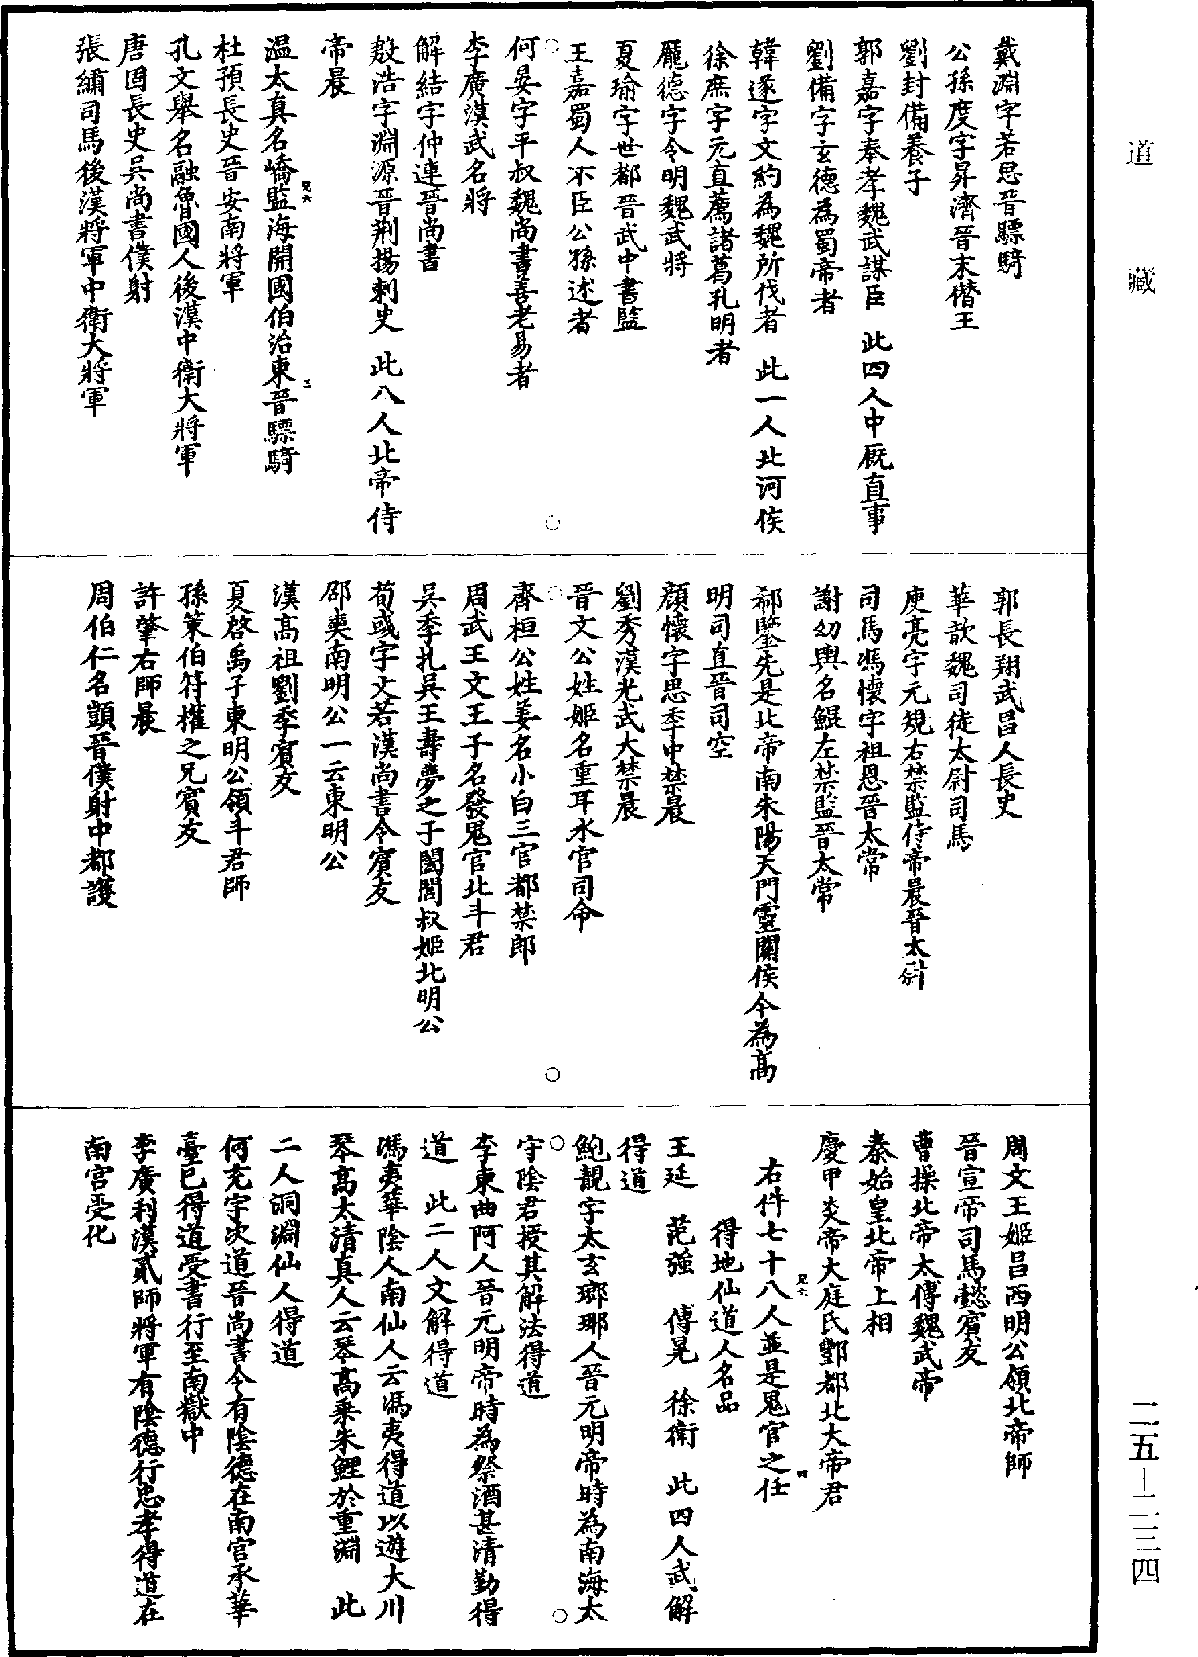 道藏
戴淵字若思晉驃騎
公孫度字昇濟晉末僣王
劉封備養子
郭嘉字奉孝魏武謀臣　此四人中厩直事
劉備字玄德為蜀帝者
韓遂字文約為魏所伐者　此一人北河侯
徐庶字元直薦諸葛孔明者
龐德字令明魏武將
夏瑜字世都晉武中書監
王嘉蜀人不臣公孫述者
何晏字平叔魏尚書善老易者
李廣漢武名將
解結字仲連晉尚書
殷浩字淵源晉荆揚刺史　此八人北帝侍
帝晨
温太真名嶠監海開國伯治東晉驃騎
杜預長史晉安南將軍
孔文舉名融魯國人後漢中衛大將軍
唐固長史吳尚書僕射
張繡司馬後漢將軍中衛大將軍
郭長翔武昌人長史
華歆魏司徒太尉司馬
庾亮字元規右禁監侍帝晨晉太尉
司馬馮懷字祖恩晉太常
謝幼輿名鯤左禁監晉太常
郗鑒先是北帝南朱陽天門靈關侯今為高
明司直晉司空
顏懷字思季中禁晨
劉秀漢光武大禁晨
晉文公姓姬名重耳水官司命
齊桓公姓姜名小白三官都禁郎
周武王文王子名發鬼官北斗君
吳季扎吳王壽夢之子闔閭叔姬北明公
荀彧字文若漢尚書令賓友
邵奭南明公一云東明公
漢高祖劉季賓友
夏啓禹子東明公領斗君師
孫策伯符權之兄賓友
許肇右師晨
周伯仁名顗晉僕射中都護
周文王姬昌西明公領北帝師
晉宣帝司馬懿賓友
曹操北帝太傅魏武帝
秦始皇北帝上相
慶甲炎帝大庭氏酆都北大帝君
右件七十八人並是鬼官之任
得地仙道人名品
王延　范強　傅晃　徐衛　此四人武解
得道
鮑靚字太玄瑯琊人晉元明帝時為南海太
守陰君授其解法得道
李東曲阿人晉元明帝時為祭酒甚清勤得
道　此二人文解得道
馮夷華陰人南仙人云馮夷得道以遊大川
琴高太清真人云琴高乘朱鯉於重淵　此
二人洞淵仙人得道
何充字次道晉尚書令有陰德在南宮承華
臺已得道受書行至南獄中
李廣利漢貳師將軍有陰德行忠孝得道在
南宮受化
二五—二三四